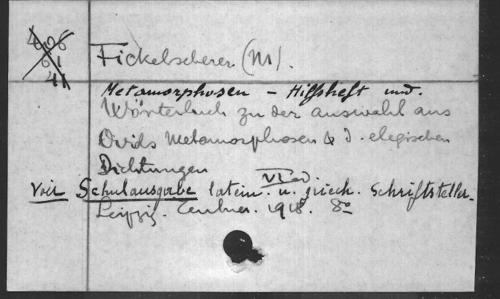 Fickelscherer (M).
Metamorphosen - Hilfsheft und.
Wörterbuch zu der auswahl aus
Ovids Metamorphosen & d. elegischen
Dichtungen VI ed.
Voir Schulausgabe latein. u. griech. Schriftsteller.
Leipzig. Teubner. 1918. 8º